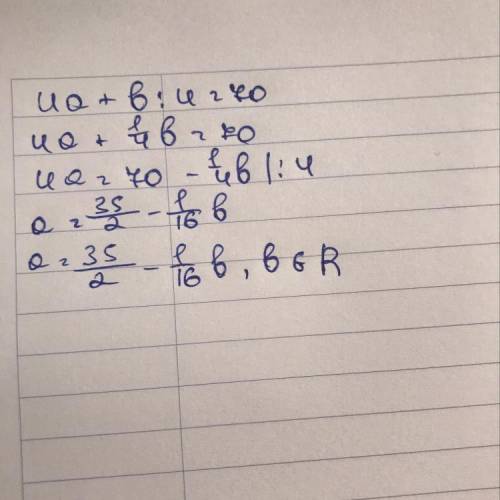 4a + b : 4 = 70
4a + 1/4 b = 70
4a = 70 - 1/4 b |: 4
a = 35/2 - 1/16 b
a = 35/2 - 1/16 b, b ∈ R